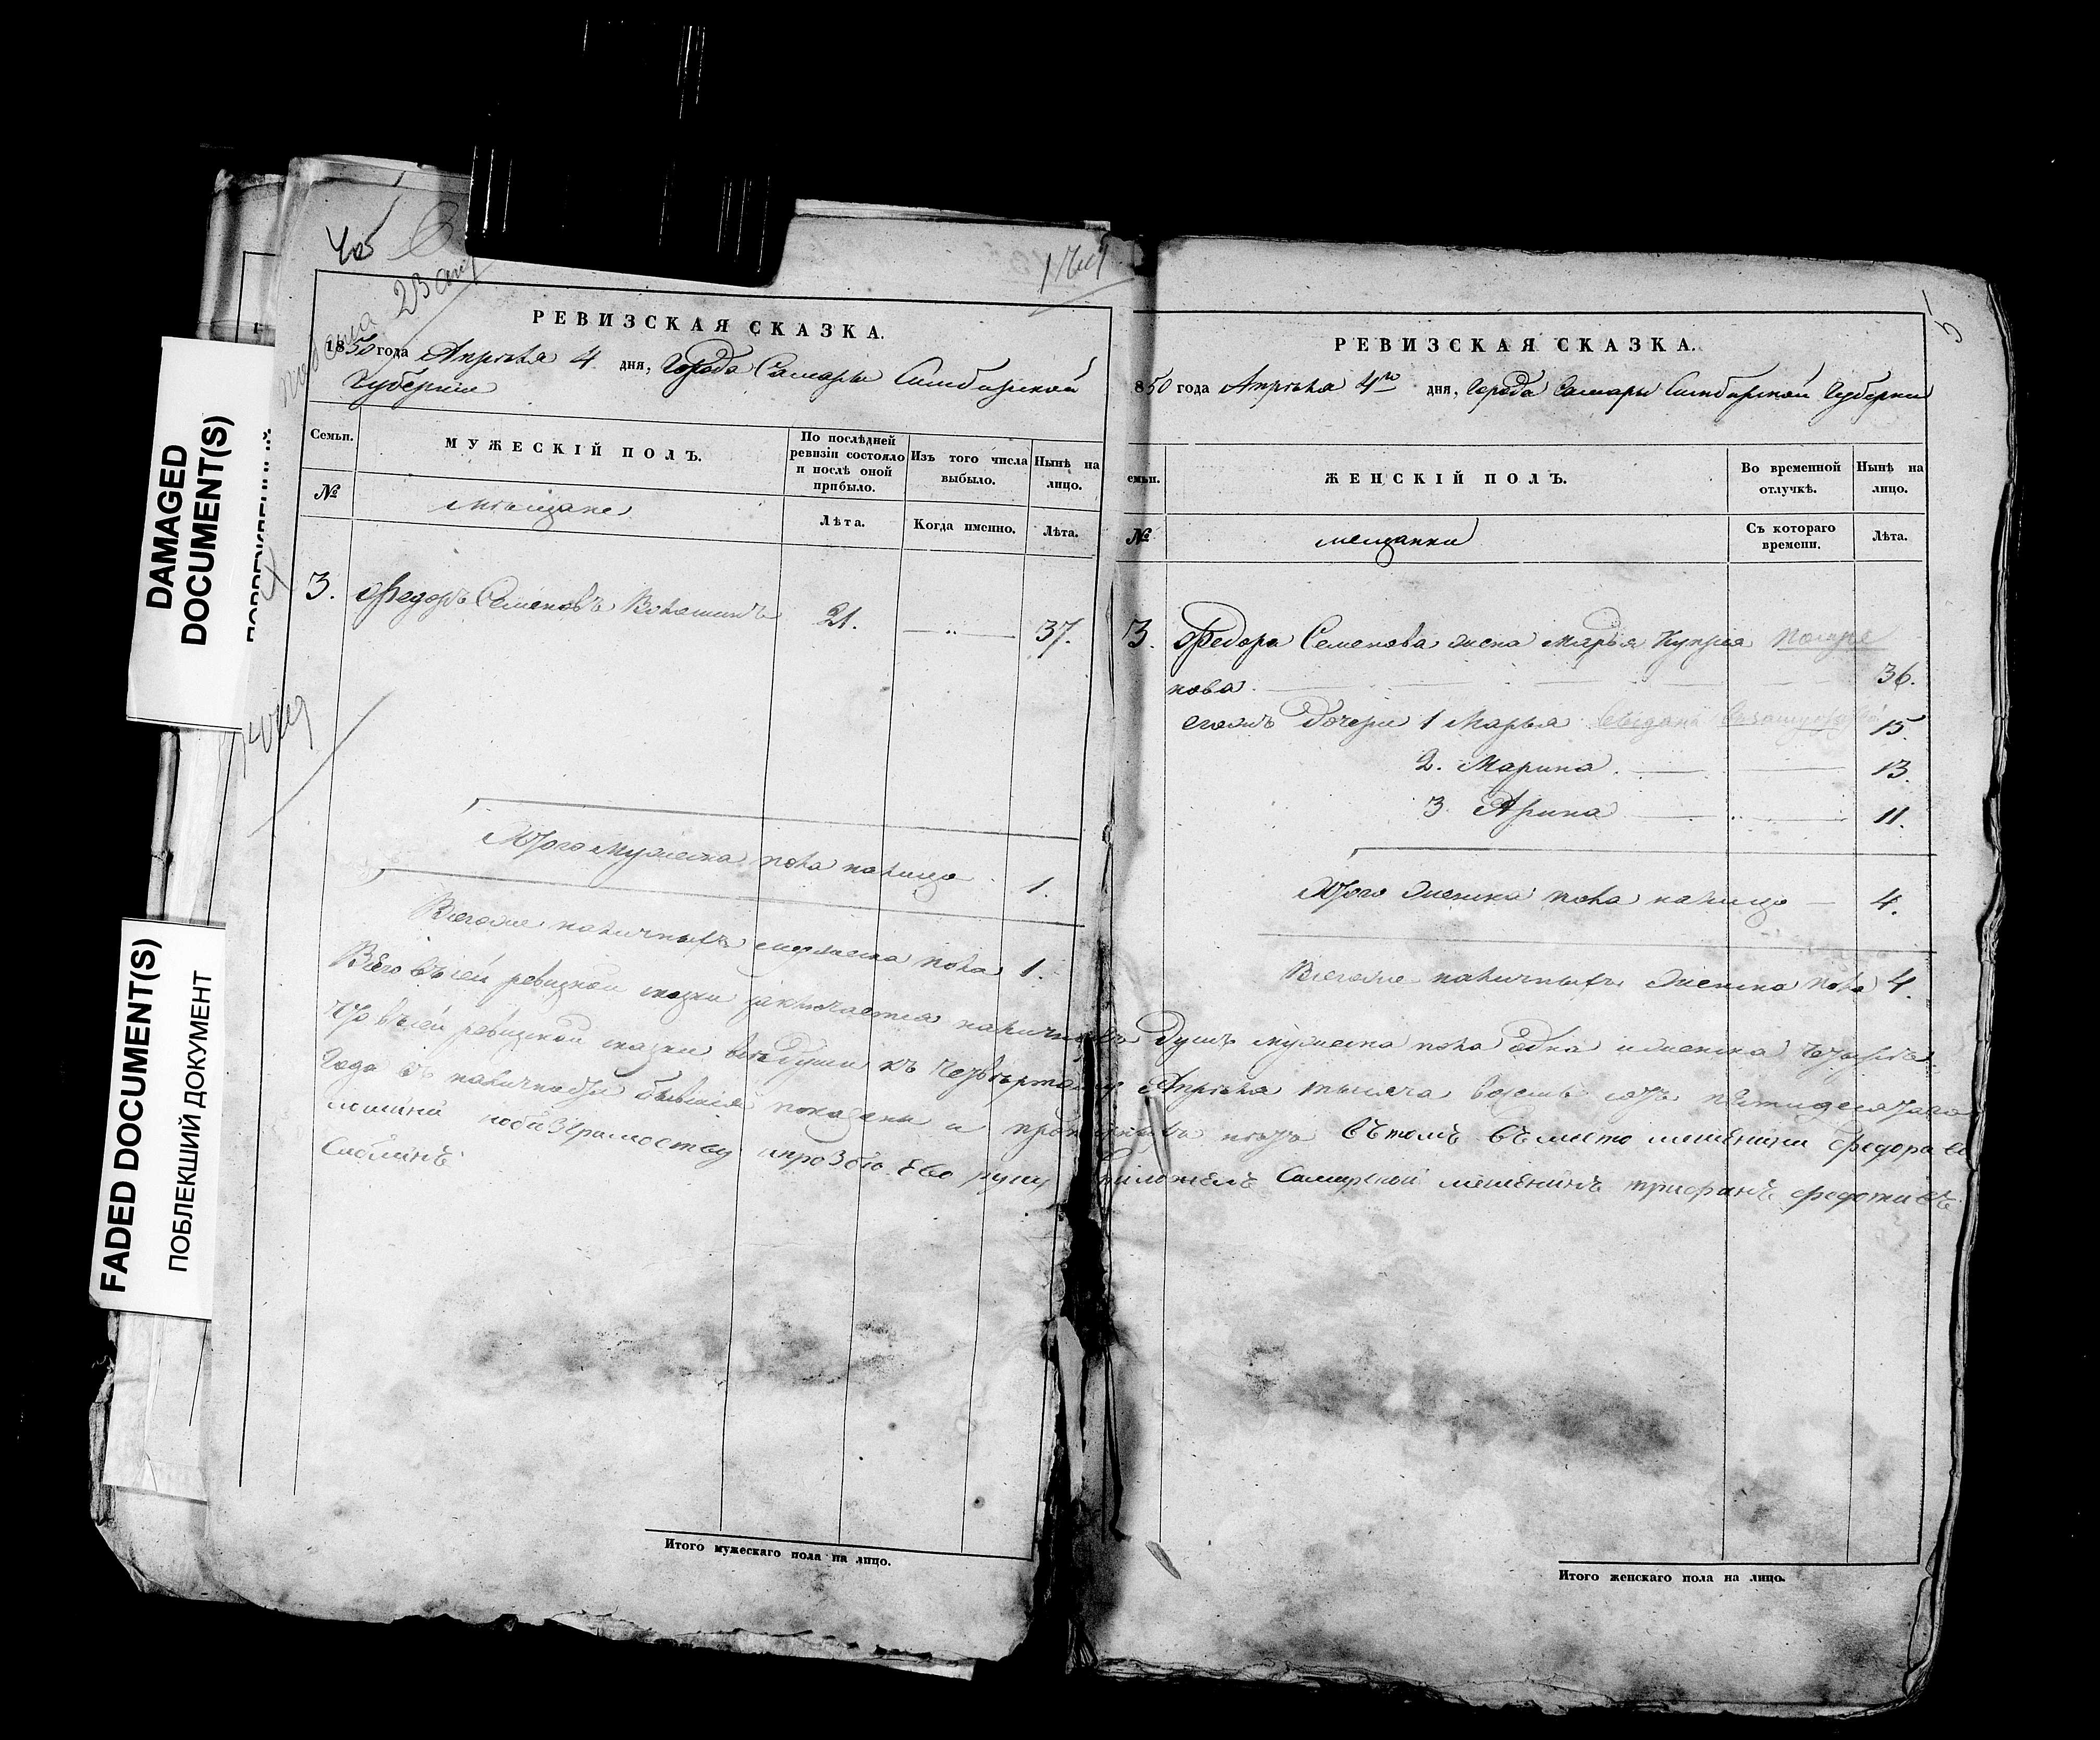 DAMAGED
DOCUMENT(S)
FADED DOCUMENT(S)
ПОБЛЕКШИЙ ДОКУМЕНТ
РЕВИЗСКАЯ СКАЗКА.
1850 года Апрѣля 4 дня, Города Самары Симбирской
Губернии
Семьи.
МУЖЕСКІЙ ПОЛЪ.
По послѣдней
ревизіи состояло
и послѣ оной
прибыло.
Изъ того числа
выбыло.
Нынѣ на
лицо.
№
мѣщане
Лѣта.
Когда именно.
Лѣта.
3. Федоръ Семеновъ 21. — „ — 37.
Итого мужеска пола налицо 1.
Всего же наличныхъ мужеска пола 1.
РЕВИЗСКАЯ СКАЗКА.
850 года Апрѣля 4го дня, Города Самары Симбирской Губернии
емьи.
ЖЕНСКІЙ ПОЛЪ.
Во временной
отлучкѣ.
Нынѣ на
лицо.
№
мещанки
Съ котораго
времени.
Лѣта.
3. Федора Семенова жена Марья Куприя
нова. 36.
его же дочери 1 Марья 15.
2. Марина. 13.
3. Арина 11.
Итого женска пола налицо — 4.
Всего же наличныхъ женска пола 4.
Всего въ сей ревизкой сказки заключается наличныхъ душъ мужеска пола одна и женска четыре
Что въ сей ревизкой сказки все души къ четвертому Апрѣля тысяча восемь сотъ пятидесятаго
Года въ наличности бывшия показаны и прописныхъ нетъ въ томъ въ место мещенина федора
руку приложилъ Самарской мещенинъ трифанъ федотивъ
Итого мужескаго пола на лицо.
Итого женскаго пола на лицо.